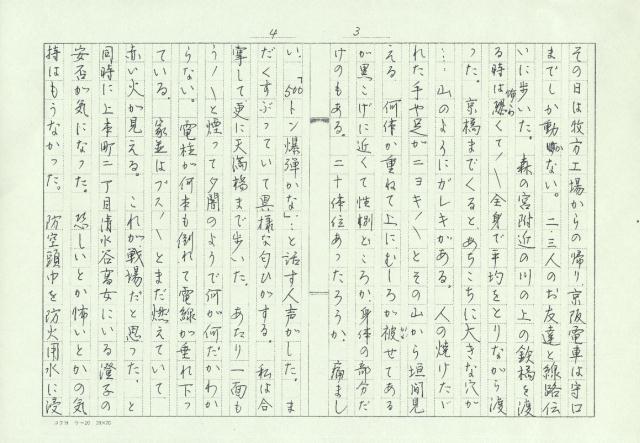 3
その日は牧方工場からの帰り京阪電車は守口
までしか動かない。二、三人のお友達と線路伝
いに歩いた。森の宮附近の川の上の鉄橋を渡
る時は怖くて〳〵全身で平均をとりながら渡
った。京橋までくると、あちこちに大きな穴が
…山のようにガレキがある。人の焼けただ
れた手や足がニョキ〳〵とその山から垣間見
える 何体か重ねて上にむしろが被せてある
が黒こげに近くて性別どころか、身体の部分だ
けのもある。二十体位あったろうか、痛まし
4
い、「500トン爆弾かな」…と話す人声がした。ま
だくすぶっていて異様な匂ひがする。私は合
掌して更に天満橋まで歩いた。あたり一面も
う〳〵と煙って夕闇のようで何が何だかわか
らない。電柱が何本も倒れて電線が垂れ下っ
ている。家並はブス〳〵とまだ燃えていて
赤い火が見える。これが戦場だと思った。と
同時に上本町二丁目清水谷高女にいる澄子の
安否が気になった。恐しいとか怖いとかの気
持はもうなかった。防空頭巾を防火用水に浸
コクヨ ケー20 20×20